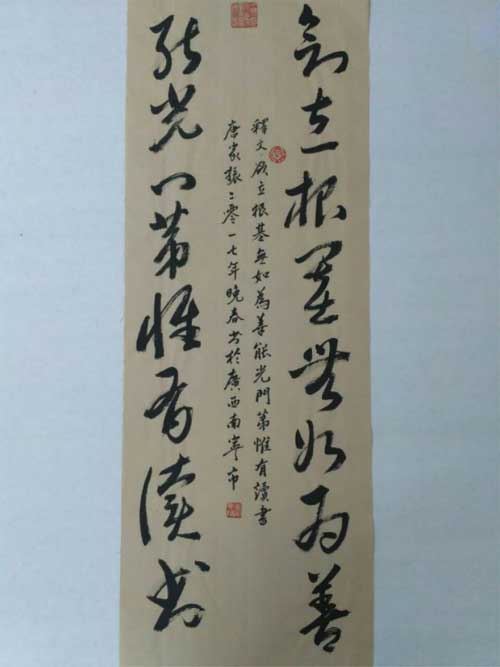 欲立根基無如為善
釋文欲立根基無如為善能光門第惟有讀書
唐家振二零一七年晚春书於廣西南寧市
能光門第惟有讀书